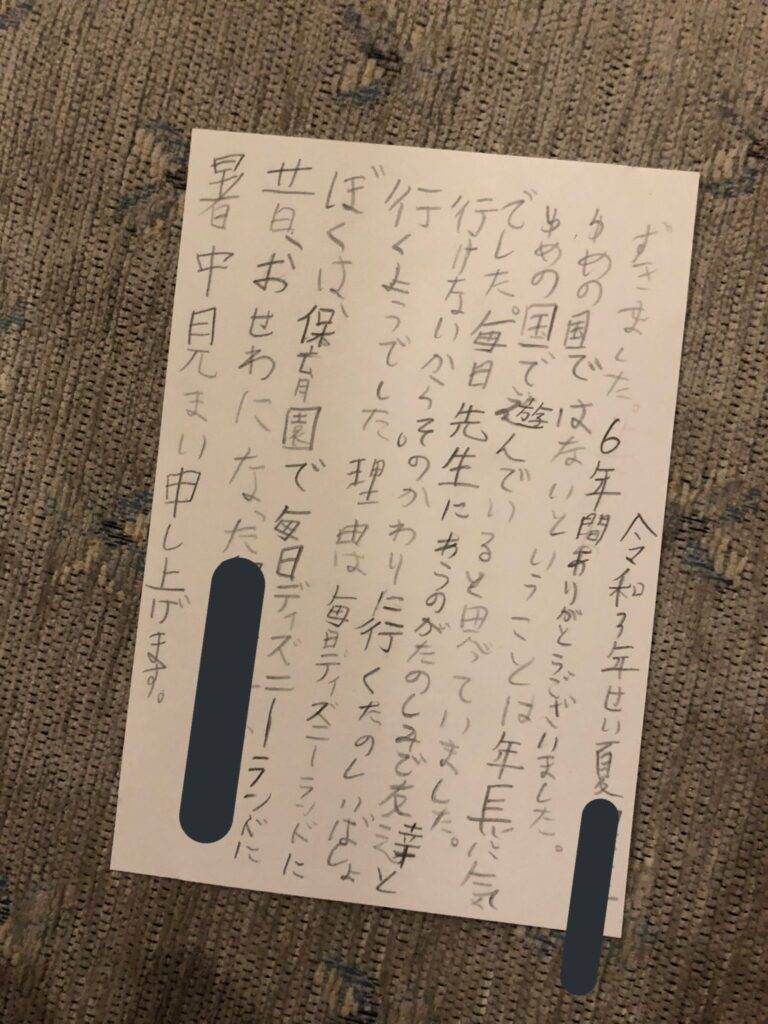 暑中見まい申し上げます。
昔、おせわになった
ぼくは、保育園で毎日ディズニーランドに
行くようでした。理由は毎日ディズニーランドに
行けないからそのかわりに行くたのしいばしょ
でした。毎日先生にあうのがたのしみで友達と
ゆめの国で遊んでいると思っていました。
ゆめの国ではないということは年長に気
ずきました。6年間ありがとうございました。
令和3年せい夏